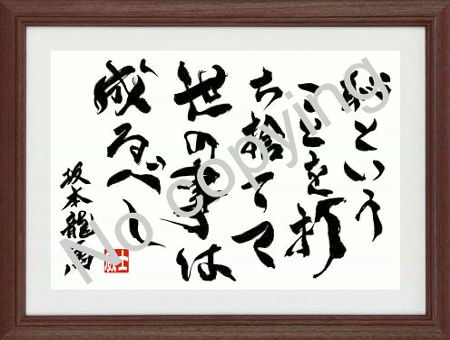 恥という
ことを打
ち捨てて
世の事は
成るべし
坂本龍馬
No copying